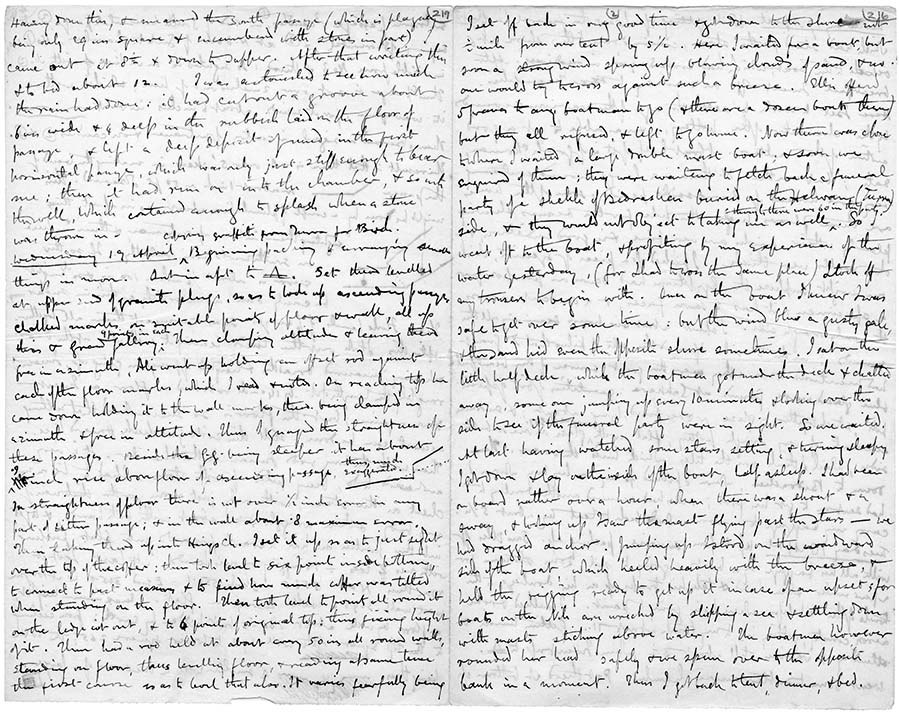 219
Having done this, & measured the South passage (which is plaguey
being only 29 ins square & encumbered with stones in part)
came out at 8½ & down to supper. After that writing this
& to bed about 12. I was astonished to see how much
the rain had done: it had cut out a groove about
6 ins wide & 4 deep in the rubbish laid on the floor of
passage, & left a deep deposit of mud in the first
horizontal passage, which was only just stiff enough to bear
me; then it had run on into the chamber, & so into
the well, which contained enough to splash when a stone
was thrown in. Copying graffiti from for Birch.
Wednesday 19 April Beginning packing & arranging
things in morn. But in aft to Set theod levelled
at upper end of granite plugs, so as to look up ascending passage
chalked marks, on suitable points of floor & wall, all up
this & grand gallery; Then clamping altitude & leaving theod
free in azimuth, Ali went up holding an offset rod against
each of the floor marks, which I read & noted. On reaching top he
came down holding it to the wall marks, theod. being clamped in
azimuth & free in altitude. Thus I gauged the straightness of
these passages. Beside the g.g. being steeper it has about
inch rise above floor of ascending passage.
In straightness of floor there is not over ½ inch error in any
part of either passage; & in the wall about .8 maximum error.
Then taking theod up into Kings Ch. I set it up so as to just sight
over the top of the coffer; then took level to six points inside bottom,
to connect to past measures & to find how much coffer was tilted
when standing on the floor. Then took level to point all round it
on the ledge cut out, & to 6 points of original top; thus fixing height
of it. Then had a rod held at about every 50 in all round walls,
standing on floor, thus levelling floor, & reading at same time
the first course so as to level that also. It varies fearfully being
(2)
216
I set off back in very good time & got down to the shore not
½ mile from our tent by 5½. Here I waited for a boat, but
soon a strong wind sprang up blowing clouds of sand, & no
one would try to cross against such a breeze. Ali offered
5 francs to any boatman to go (& there are a dozen boats there)
but they all refused, & left to go home. Now there was close
to where I waited a large double mast boat, & soon we
enquired of them; they were waiting to fetch back a funeral
party of a sheikh of Bedrashen buried on the Helwan
side, & they would not object to taking me as well. So I
went off to the boat, & profiting by my experience of the
water yesterday, (for I had to cross the same place) I took off
my trousers to begin with. Once on the boat I knew I was
safe to get over some time: but the wind blew a gusty gale,
& the sand hid even the opposite shore sometimes. I sat on the
little half deck, while the boatmen got under the deck & chatted
away, some one jumping up every 10 minutes & looking over the
side to see if the funeral party were in sight. So we waited.
At last having watched some stars setting, & turning sleepy
I got down & lay on the side of the boat, half asleep. I had been
on board rather over a hour when there was a shout & a
sway, & looking up I saw the mast flying past the stars — we
had dragged anchor. Jumping up I stood on the woodwork
side of the boat, which heeled heavily with the breeze, &
held the rigging ready to get up it in case of an upset; for
boats on the Nile are wrecked by shipping a sea & settling down
with masts sticking above water. The boatmen however
rounded her head safely & we spun over to the opposite
bank in a moment. Thus I got back to tent, dinner, & bed.